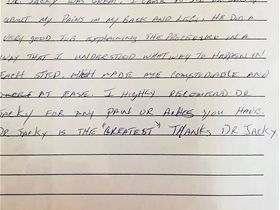 DR. JACKY WAS GREAT. I CAME TO SEE DR JACKY
ABOUT MY PAINS IN MY BACK AND LEGS. HE DID A
VERY GOOD JOB EXPLAINING THE PROCEDURE IN A
WAY THAT I UNDERSTOOD WHAT WAY TO HAPPEN IN
EACH STEP. WHICH MADE ME COMFORDABLE AND
AT EASE. I HIGHLY RECOMEND DR
JACKY FOR ANY PAIN OR ACHES YOU HAVE.
DR JACKY IS THE "GREATEST" THANKS DR JACKY